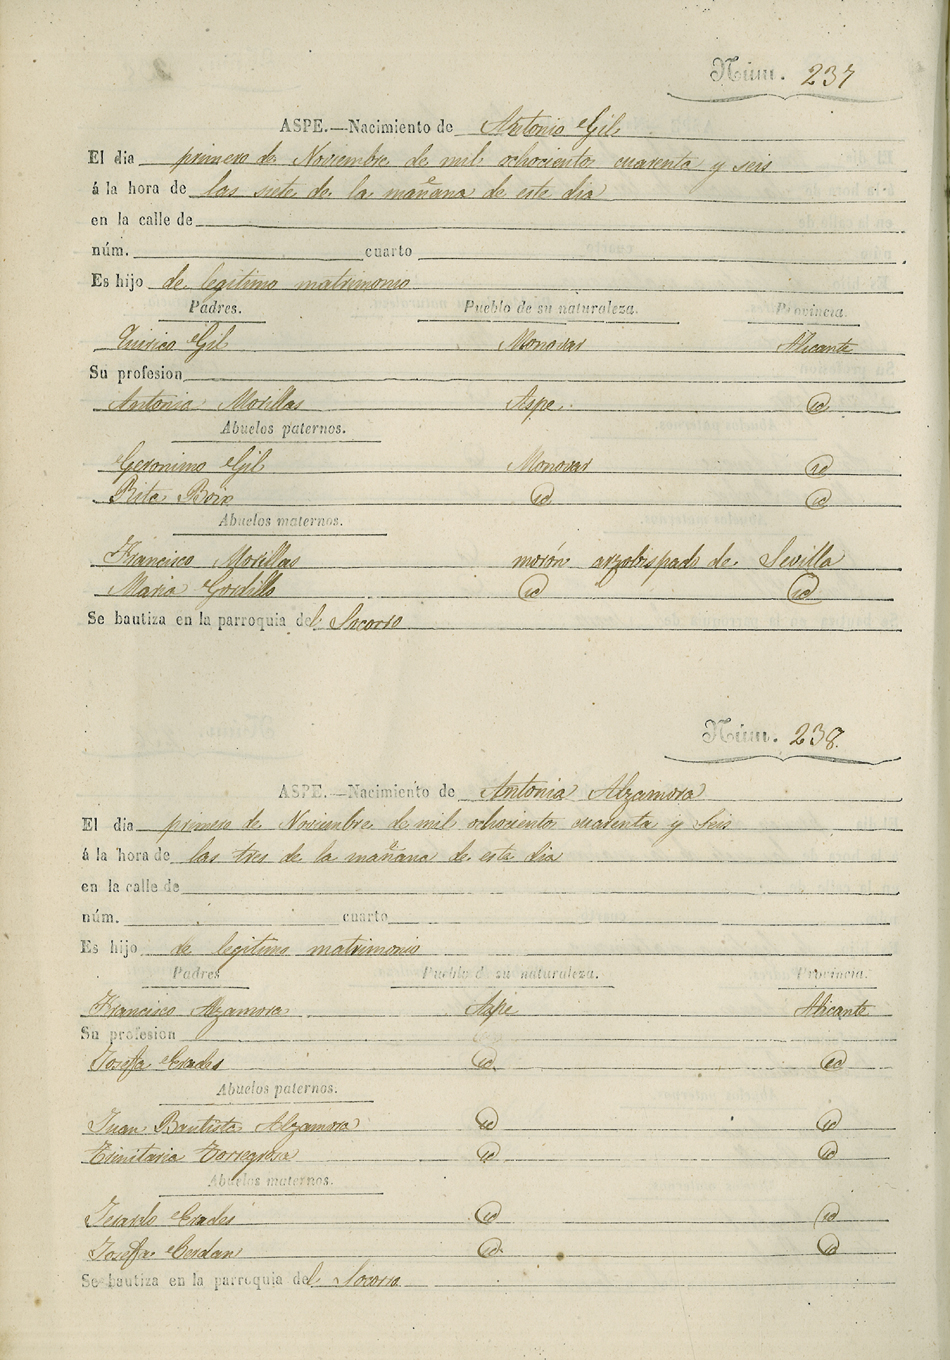 Núm. 237
ASPE.—Nacimiento de Antonio Gil
El dia primero de Noviembre de mil ochocientos cuarenta y seis
á la hora de las siete de la mañana de este dia
en la calle de
núm. cuarto
Es hijo de legitimo matrimonio
Padres. Pueblo de su naturaleza. Provincia.
Quirico Gil Monovar Alicante
Su profesion
Antonia Morillas Aspe. id
Abuelos paternos.
Geronimo Gil Monovar id
Rita Boix id id
Abuelos maternos.
Francisco Morillas morón arzobispado de Sevilla
Maria Gordillo id id
Se bautiza en la parroquia del Socorro
Núm. 238.
ASPE.—Nacimiento de Antonia Alzamora
El dia primero de Noviembre de mil ochociento cuarenta y seis
á la hora de las tres de la mañana de este dia
en la calle de
núm. cuarto
Es hijo de legitimo matrimonio
Padres Pueblo d su naturaleza. Provincia.
Francisco Alzamora Aspe Alicante
Su profesion
Josefa Erades id id
Abuelos paternos.
Juan Bautista Alzamora id id
Trinitaria Torregrosa id id
Abuelos maternos.
Jerardo Erades id id
Josefa Cerdan id id
Se bautiza en la parroquia del Socorro